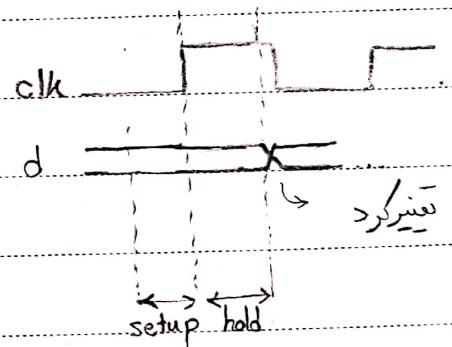 clk
d
تغییر کرد
setup hold